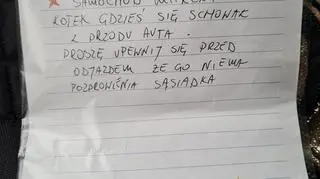 SAMOCHÓD
KOTEK GDZIEŚ SIĘ SCHOWAŁ
Z PRZODU AUTA.
PROSZĘ UPEWNIJ SIĘ PRZED
ODJAZDEM ŻE GO NIEMA
POZDROWIENIA SĄSIADKA